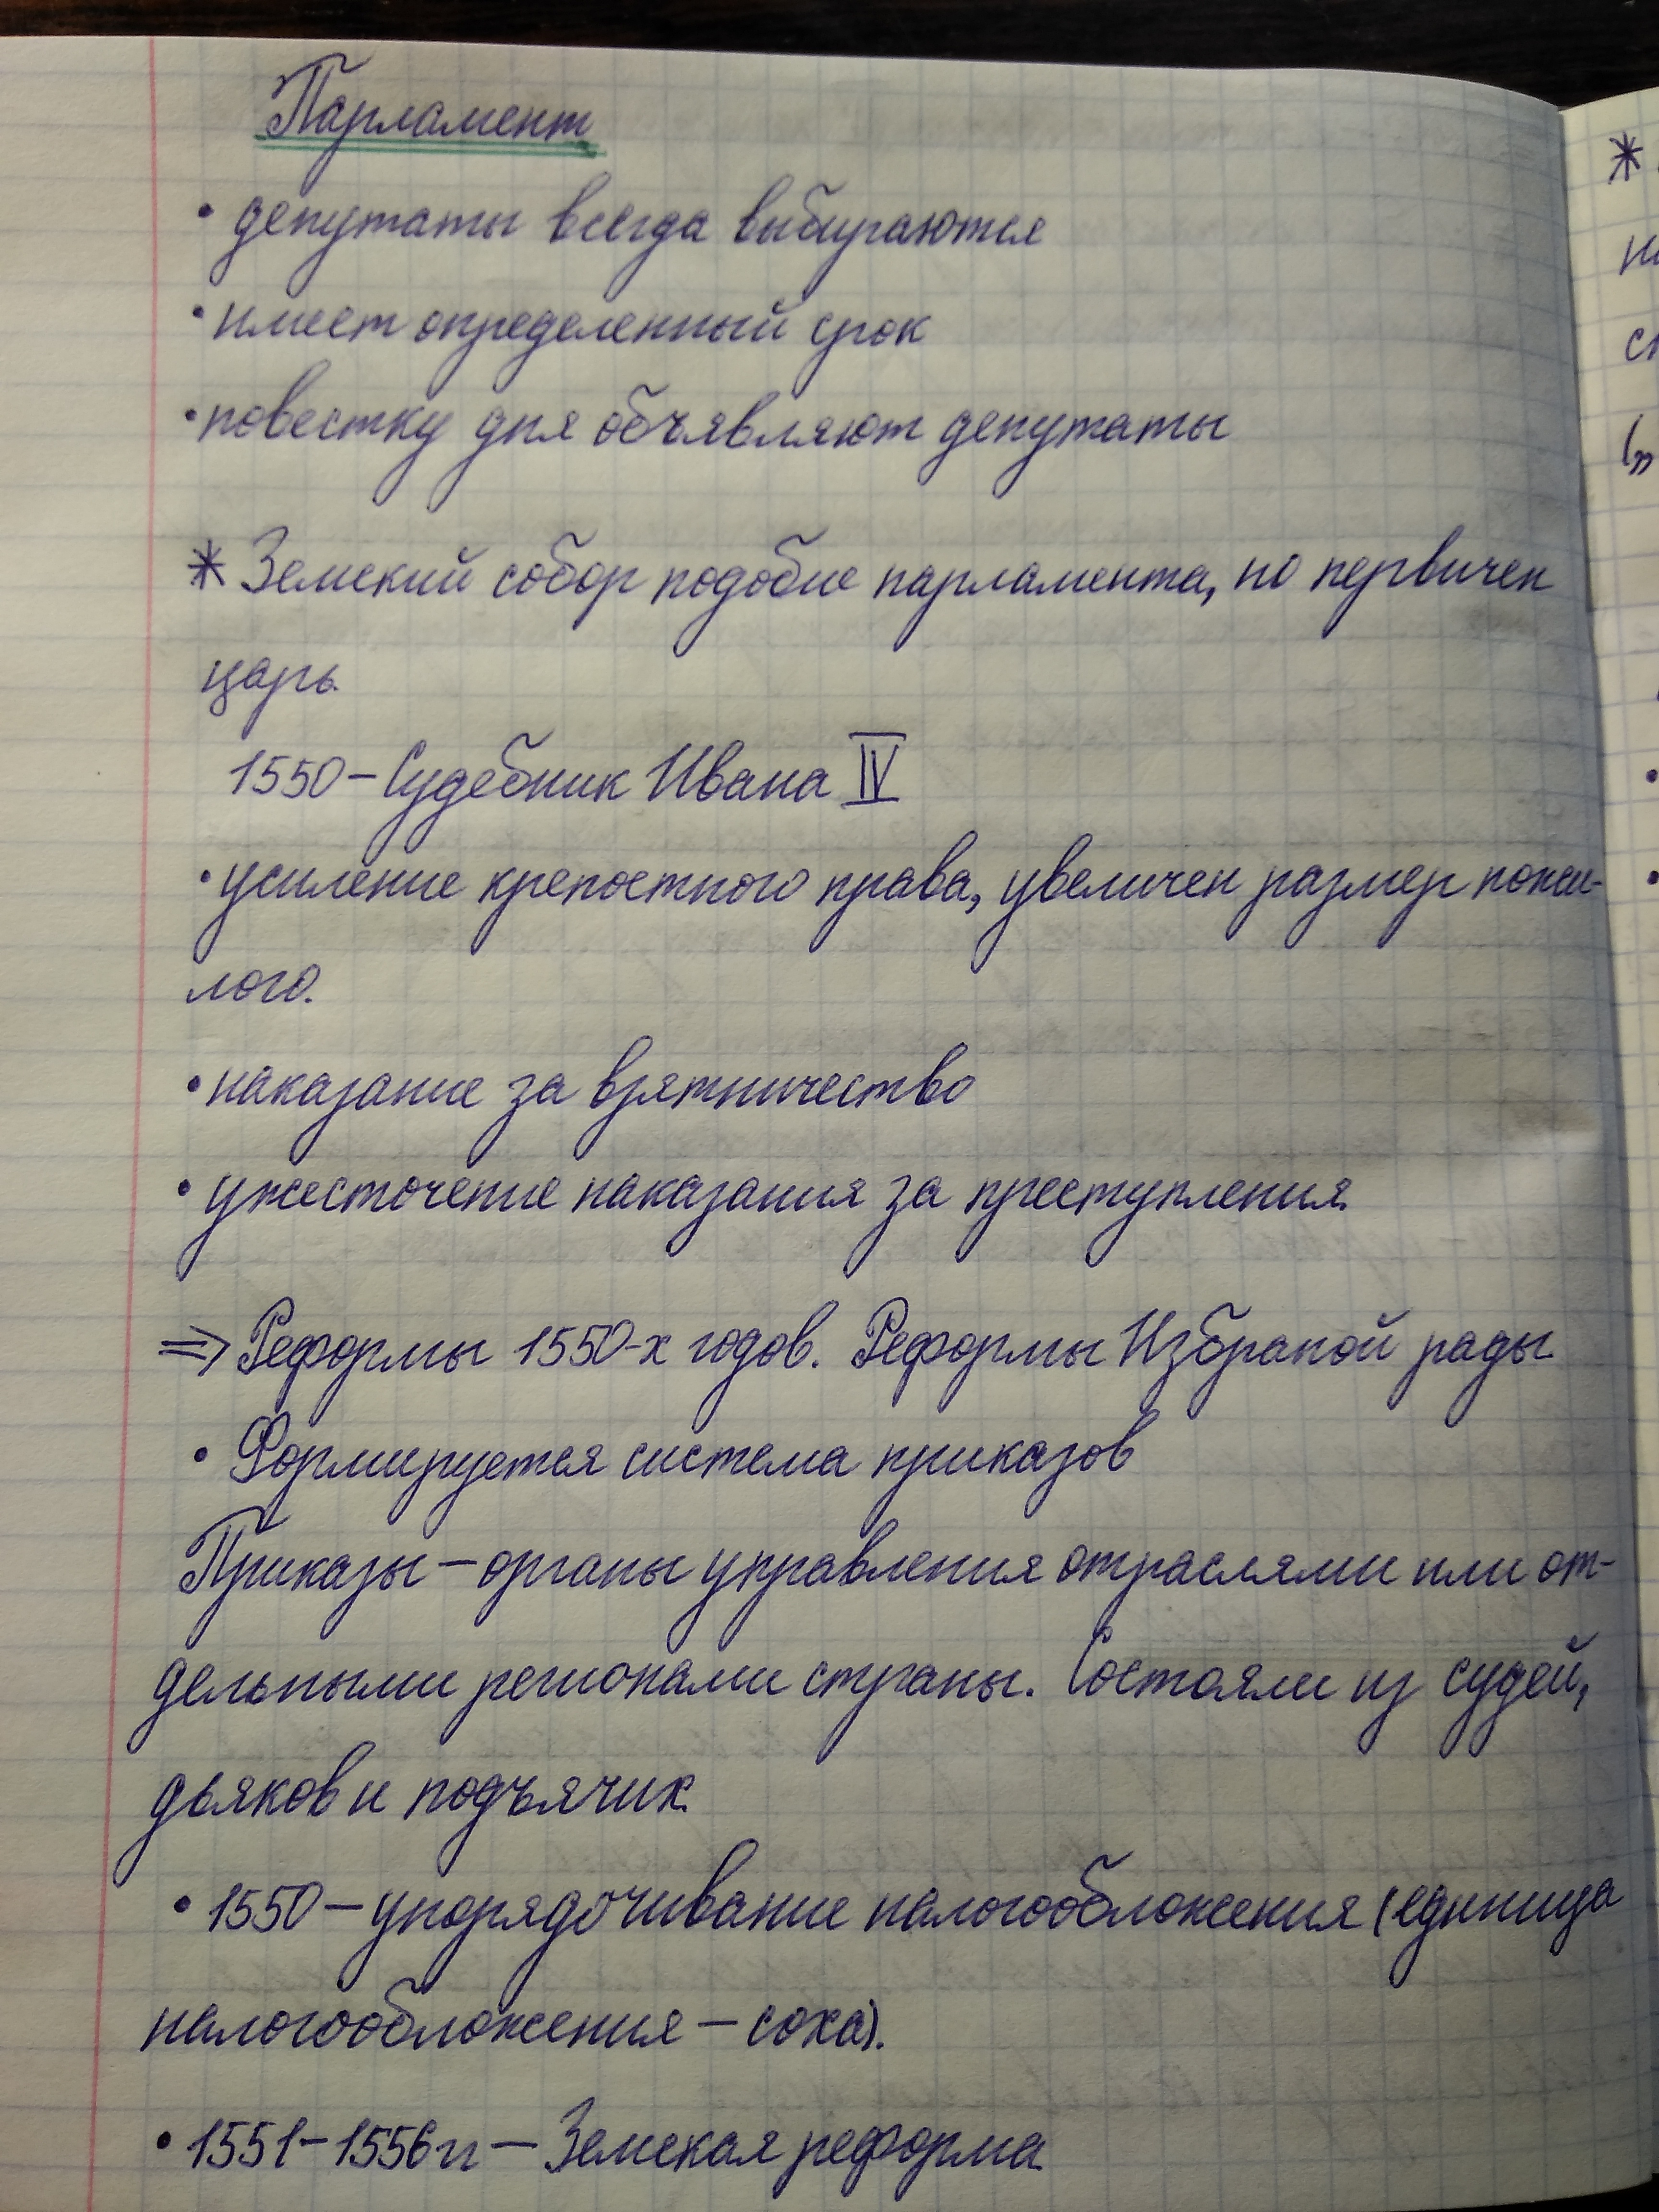 Парламент
• депутаты всегда выбираются
• имеет определенный срок
• повестку дня объявляют депутаты
* Земский собор подобие парламента, но первичен
царь.
1550 – Судебник Ивана IV
• усиление крепостного права, увеличен размер пожи-
лого.
• наказание за взятничество
• ужесточение наказания за преступления.
⇒ Реформы 1550-х годов. Реформы Избраной рады
• Формируется система приказов
Приказы – органы управления отраслями или от-
дельными регионами страны. Состояли из судей,
дьяков и подъячих.
• 1550 – упорядочивание налогообложения (единица
налогообложения – соха).
• 1551 – 1556 гг – Земская реформа